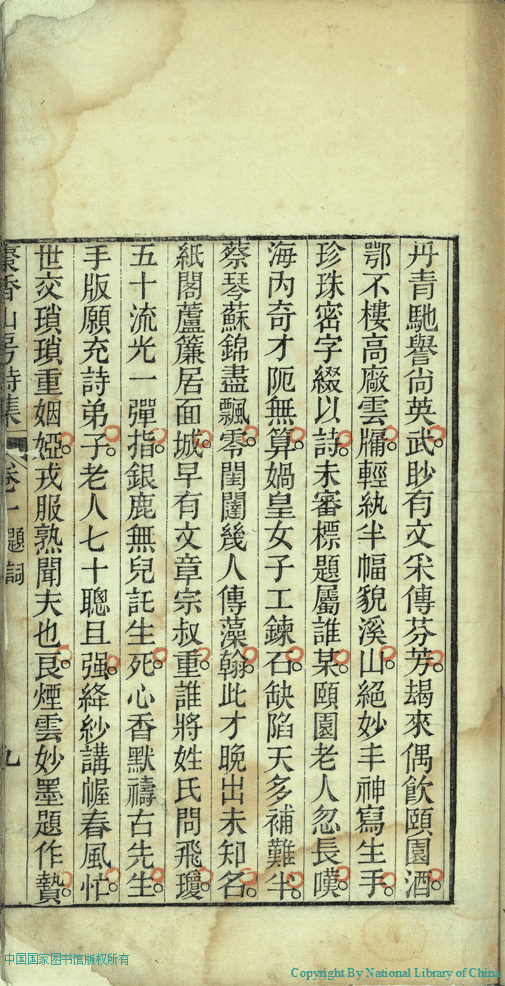 丹青馳譽尚英武眇有文采傳芬芳朅來偶飲頤園酒
鄂不樓高廠雲牖輕紈半幅貌溪山絕妙丰神寫生手
珍珠密字綴以詩未審標題屬誰某頤園老人忽長嘆
海內奇才阨無算媧皇女子工鍊石缺陷天多補難半
蔡琴蘇錦盡飄零閨闥幾人傳藻翰此才晚出未知名
紙閣蘆簾居面城早有文章宗叔重誰將姓氏問飛瓊
五十流光一彈指銀鹿無兒託生死心香默禱古先生
手版願充詩弟子老人七十聰且强絳紗講幄春風忙
世交瑣瑣重姻婭戎服熟聞夫也良煙雲妙墨題作贄
棗香山房詩集 卷一題詞 九
中国国家图书馆版权所有
Copyright By National Library of China